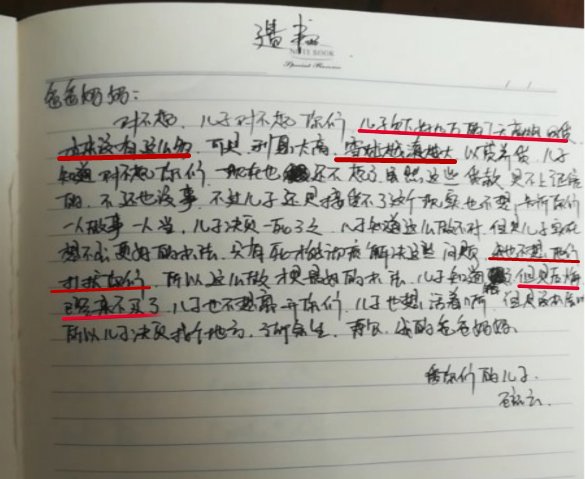 遗书
NOTE BOOK
Special Reserve
爸爸妈妈:
对不起,儿子对不起你们,儿子欠下好几万的
本来没有这么多,可是利息太高,雪球越滚越大以贷养贷,儿子
知道对不起你们,现在也还不起了虽然这些贷款是不上征信
的,不还也没事,不过儿子还是接受不了这个现实也不想
一人做事一人当,儿子决员一死了之,儿子知道这么做不对,但是儿子实在
想不出更好的办法,只有死才能彻底解决这些问题,
打扰你们,所以这么做才是最好的办法,儿子知道错了但是后悔
已经来不及了儿子也不想离开你们,儿子也想活着啊,但是没办法啊
所以儿子决员找个地方,了所余生,再见,我的爸爸妈妈.
爱你们的儿子.